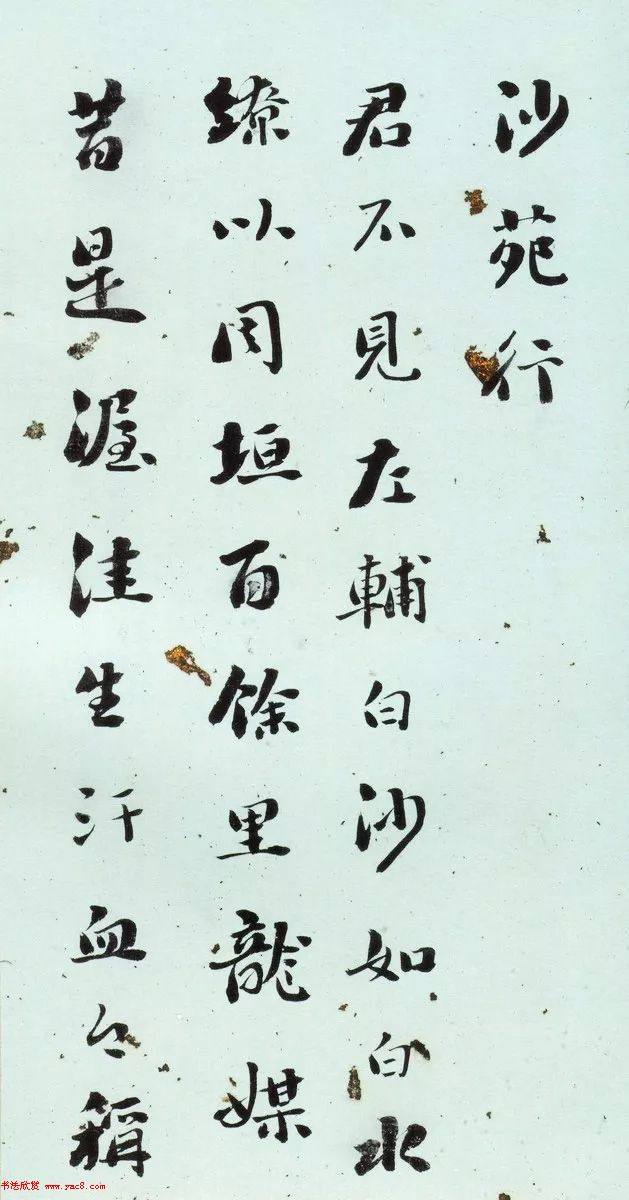 沙苑行
君不見左輔白沙如白水
繚以周垣百餘里龍媒
昔是渥洼生汗血今稱
书法欣赏 www.yac8.com